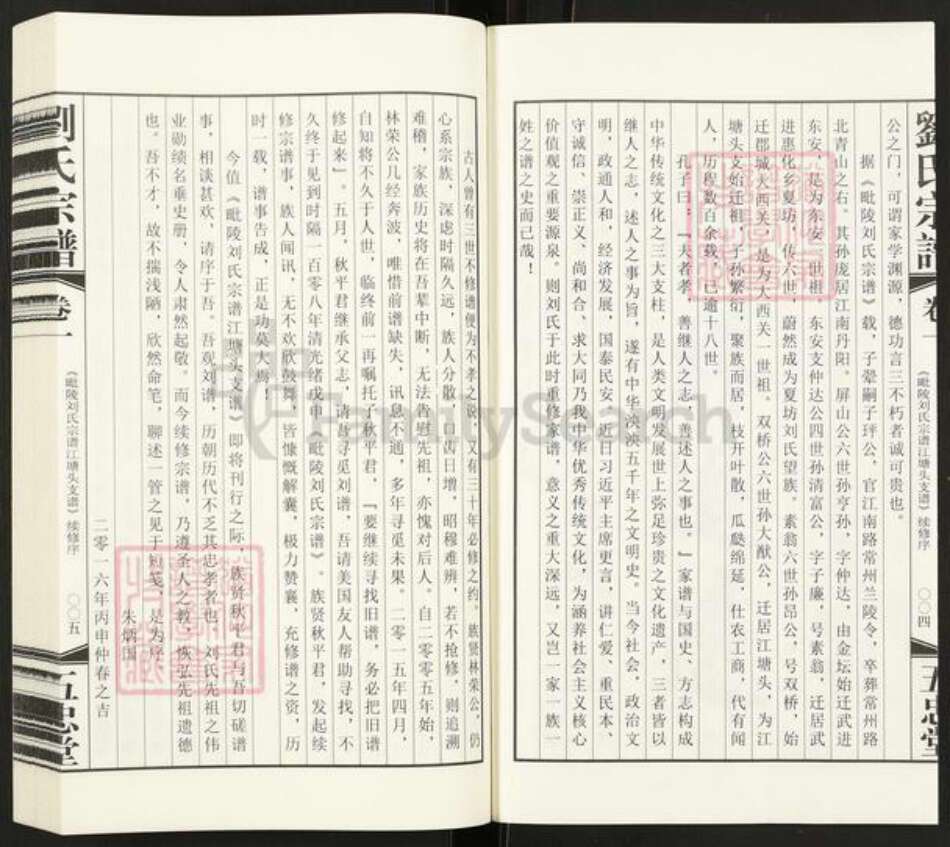 劉氏宗譜
卷一
《毗陵刘氏宗谱江塘头支谱》续修序
〇〇四
五忠堂
公之门，可谓家学渊源，德功言三不朽者诚可贵也。
据《毗陵刘氏宗谱》载，子翚嗣子玶公，官江南路常州兰陵令，卒葬常州路
北青山之右。其孙庞居江南丹阳。屏山公六世孙亨孙，字仲达，由金坛始迁武进
东安，是为东安一世祖。东安支仲达公四世孙清富公，字子廉，号素翁，迁居武
进惠化乡夏坊，传六世，蔚然成为夏坊刘氏望族。素翁六世孙昂公，号双桥，始
迁郡城大西关，是为大西关一世祖。双桥公六世孙大猷公，迁居江塘头，为江
塘头支始迁祖。子孙繁衍，聚族而居，枝开叶散，瓜瓞绵延，仕农工商，代有闻
人，历程数百余载，已逾十八世。
孔子曰：『夫孝者，善继人之志，善述人之事也。』家谱与国史、方志构成
中华传统文化之三大支柱，是人类文明发展世上弥足珍贵之文化遗产，三者皆以
继人之志，述人之事为旨，遂有中华泱泱五千年之文明史。当今社会，政治文
明，政通人和，经济发展，国泰民安，近日习近平主席更言，讲仁爱、重民本、
守诚信、崇正义、尚和合、求大同乃我中华优秀传统文化，为涵养社会主义核心
价值观之重要源泉。则刘氏于此时重修家谱，意义之重大深远，又岂一家一族一
姓之谱之史而已哉！
古人曾有三世不修谱便为不孝之说，又有三十年必修之约。族贤林荣公，仍
心系宗族，深虑时隔久远，族人分散，口齿日增，昭穆难辨，若不抢修，则追溯
难稽，家族历史将在吾辈中断，无法告慰先祖，亦愧对后人。自二零零五年始，
林荣公几经奔波，唯惜前谱缺失，讯息不通，多年寻觅未果。二零一五年四月，
自知将不久于人世，临终前一再嘱托子秋平君，『要继续寻找旧谱，务必把旧谱
修起来』。五月，秋平君继承父志，请吾寻觅刘谱，吾请美国友人帮助寻找，不
久终于见到时隔一百零八年清光绪戊申《毗陵刘氏宗谱》。族贤秋平君，发起续
修宗谱事，族人闻讯，无不欢欣鼓舞，皆慷慨解囊，极力赞襄，充修谱之资，历
时一载，谱事告成，正是功莫大焉！
今值《毗陵刘氏宗谱江塘头支谱》即将刊行之际，族贤秋平君与吾切磋谱
事，相谈甚欢，请序于吾。吾观刘谱，历朝历代不乏其忠孝者也，刘氏先祖之伟
业勋绩名垂史册，令人肃然起敬。而今续修宗谱，乃遵圣人之教，恢弘先祖遗德
也。吾不才，故不揣浅陋，欣然命笔，聊述一管之见于短笺，是为序。
朱炳国
二零一六年丙申仲春之吉
劉氏宗譜
卷一
《毗陵刘氏宗谱江塘头支谱》续修序
〇〇五
五忠堂
FamilySearch